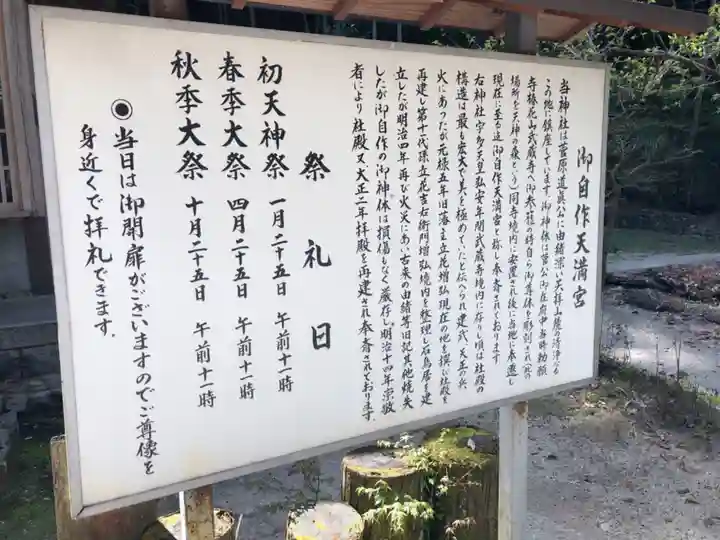 御自作天満宮
当神社は菅原道真公に由緒深い天拝山麓の清浄なる
この地に鎮座しています御神体は菅公御在府中当時勅願
寺椿花山武蔵寺へ御参籠の待自ら御尊体を彫刻され(此の
場所を天神の森という)同寺境内に安置され後に当地に奉遷し
現在に至る迄御自作天満宮と称し奉斎されております
右神社宇多天皇弘安年間武蔵寺境内に存りし頃は社殿の
構造は最も宏大で美を極めていたと伝へられ建武、天正の兵
火にあったが元禄五年旧藩主立花増弘現在の地を撰び社殿を
再建し第十代孫立花吉右衛門増弘境内を整理し石鳥居を建
立したが明治四年再び火災にあい古来の由緒等旧記其他焼失
したが御自作の御神体は損傷もなく厳存し明治十四年崇敬
者により社殿又大正二年拝殿を再建され奉斎されております。
祭礼日
初天神祭 一月二十五日 午前十一時
春季大祭 四月二十五日 午前十一時
秋季大祭 十月二十五日 午前十一時
◉当日は御開扉がございますのでご尊像を
身近くで拝礼できます.